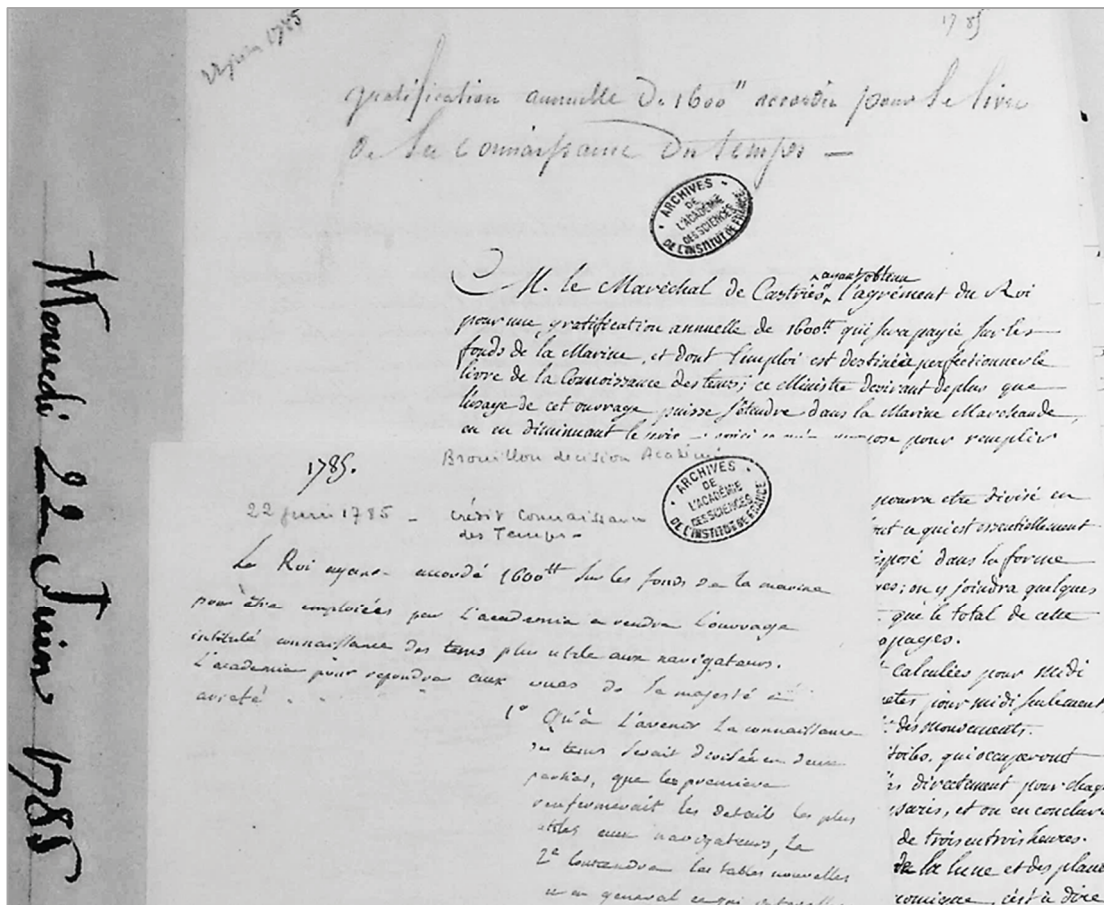 22 juin 1785
1785
gratification annuelle de 1600" accordée pour le livre
de la connaissance du temps —
ARCHIVES
DE
L'ACADÉMIE
DES SCIENCES
DE L'INSTITUT DE FRANCE
ayant obtenu
M. le Maréchal de Castries l'agrément du Roi
pour une gratification annuelle de 1600tt qui sera payée sur les
fonds de la Marine, et dont l'emploi est destiné à perfectionner le
livre de la Connoissance des tems; ce Ministre desirant de plus que
l'usage de cet ouvrage puisse s'étendre dans la Marine Marchande,
en en diminuant le pour remplir
Mercredi 22 Juin 1785
Brouillon décision Académie
1785.
ARCHIVES
DE
L'ACADÉMIE
DES SCIENCES
DE L'INSTITUT DE FRANCE
22 juin 1785 - Crédit Connaissance
des Temps -
Le Roi ayant accordé 1600tt sur les fonds de la marine
pour être emploiées par l'academie a rendre l'ouvrage
intitulé connaissance des tems plus utile aux navigateurs.
L'academie pour repondre aux vues de sa majesté a
arreté
1° Qu'à l'avenir la connaissance
des tems serait divisée en deux
parties, que la premiere
renfermerait les details les plus
utiles aux navigateurs, la
2e contiendra les tables nouvelles
et en general ce qui
pourra etre divisé en
tout ce qui est essentiellement
disposé dans la forme
; on y joindra quelques
que le total de cette
pages.
Calculées pour midi
pour midi seulement,
des mouvements.
étoiles, qui occuperont
directement pour chaque
, et on en conclura
de trois en trois heures.
de la lune et des plane
, c'est à dire